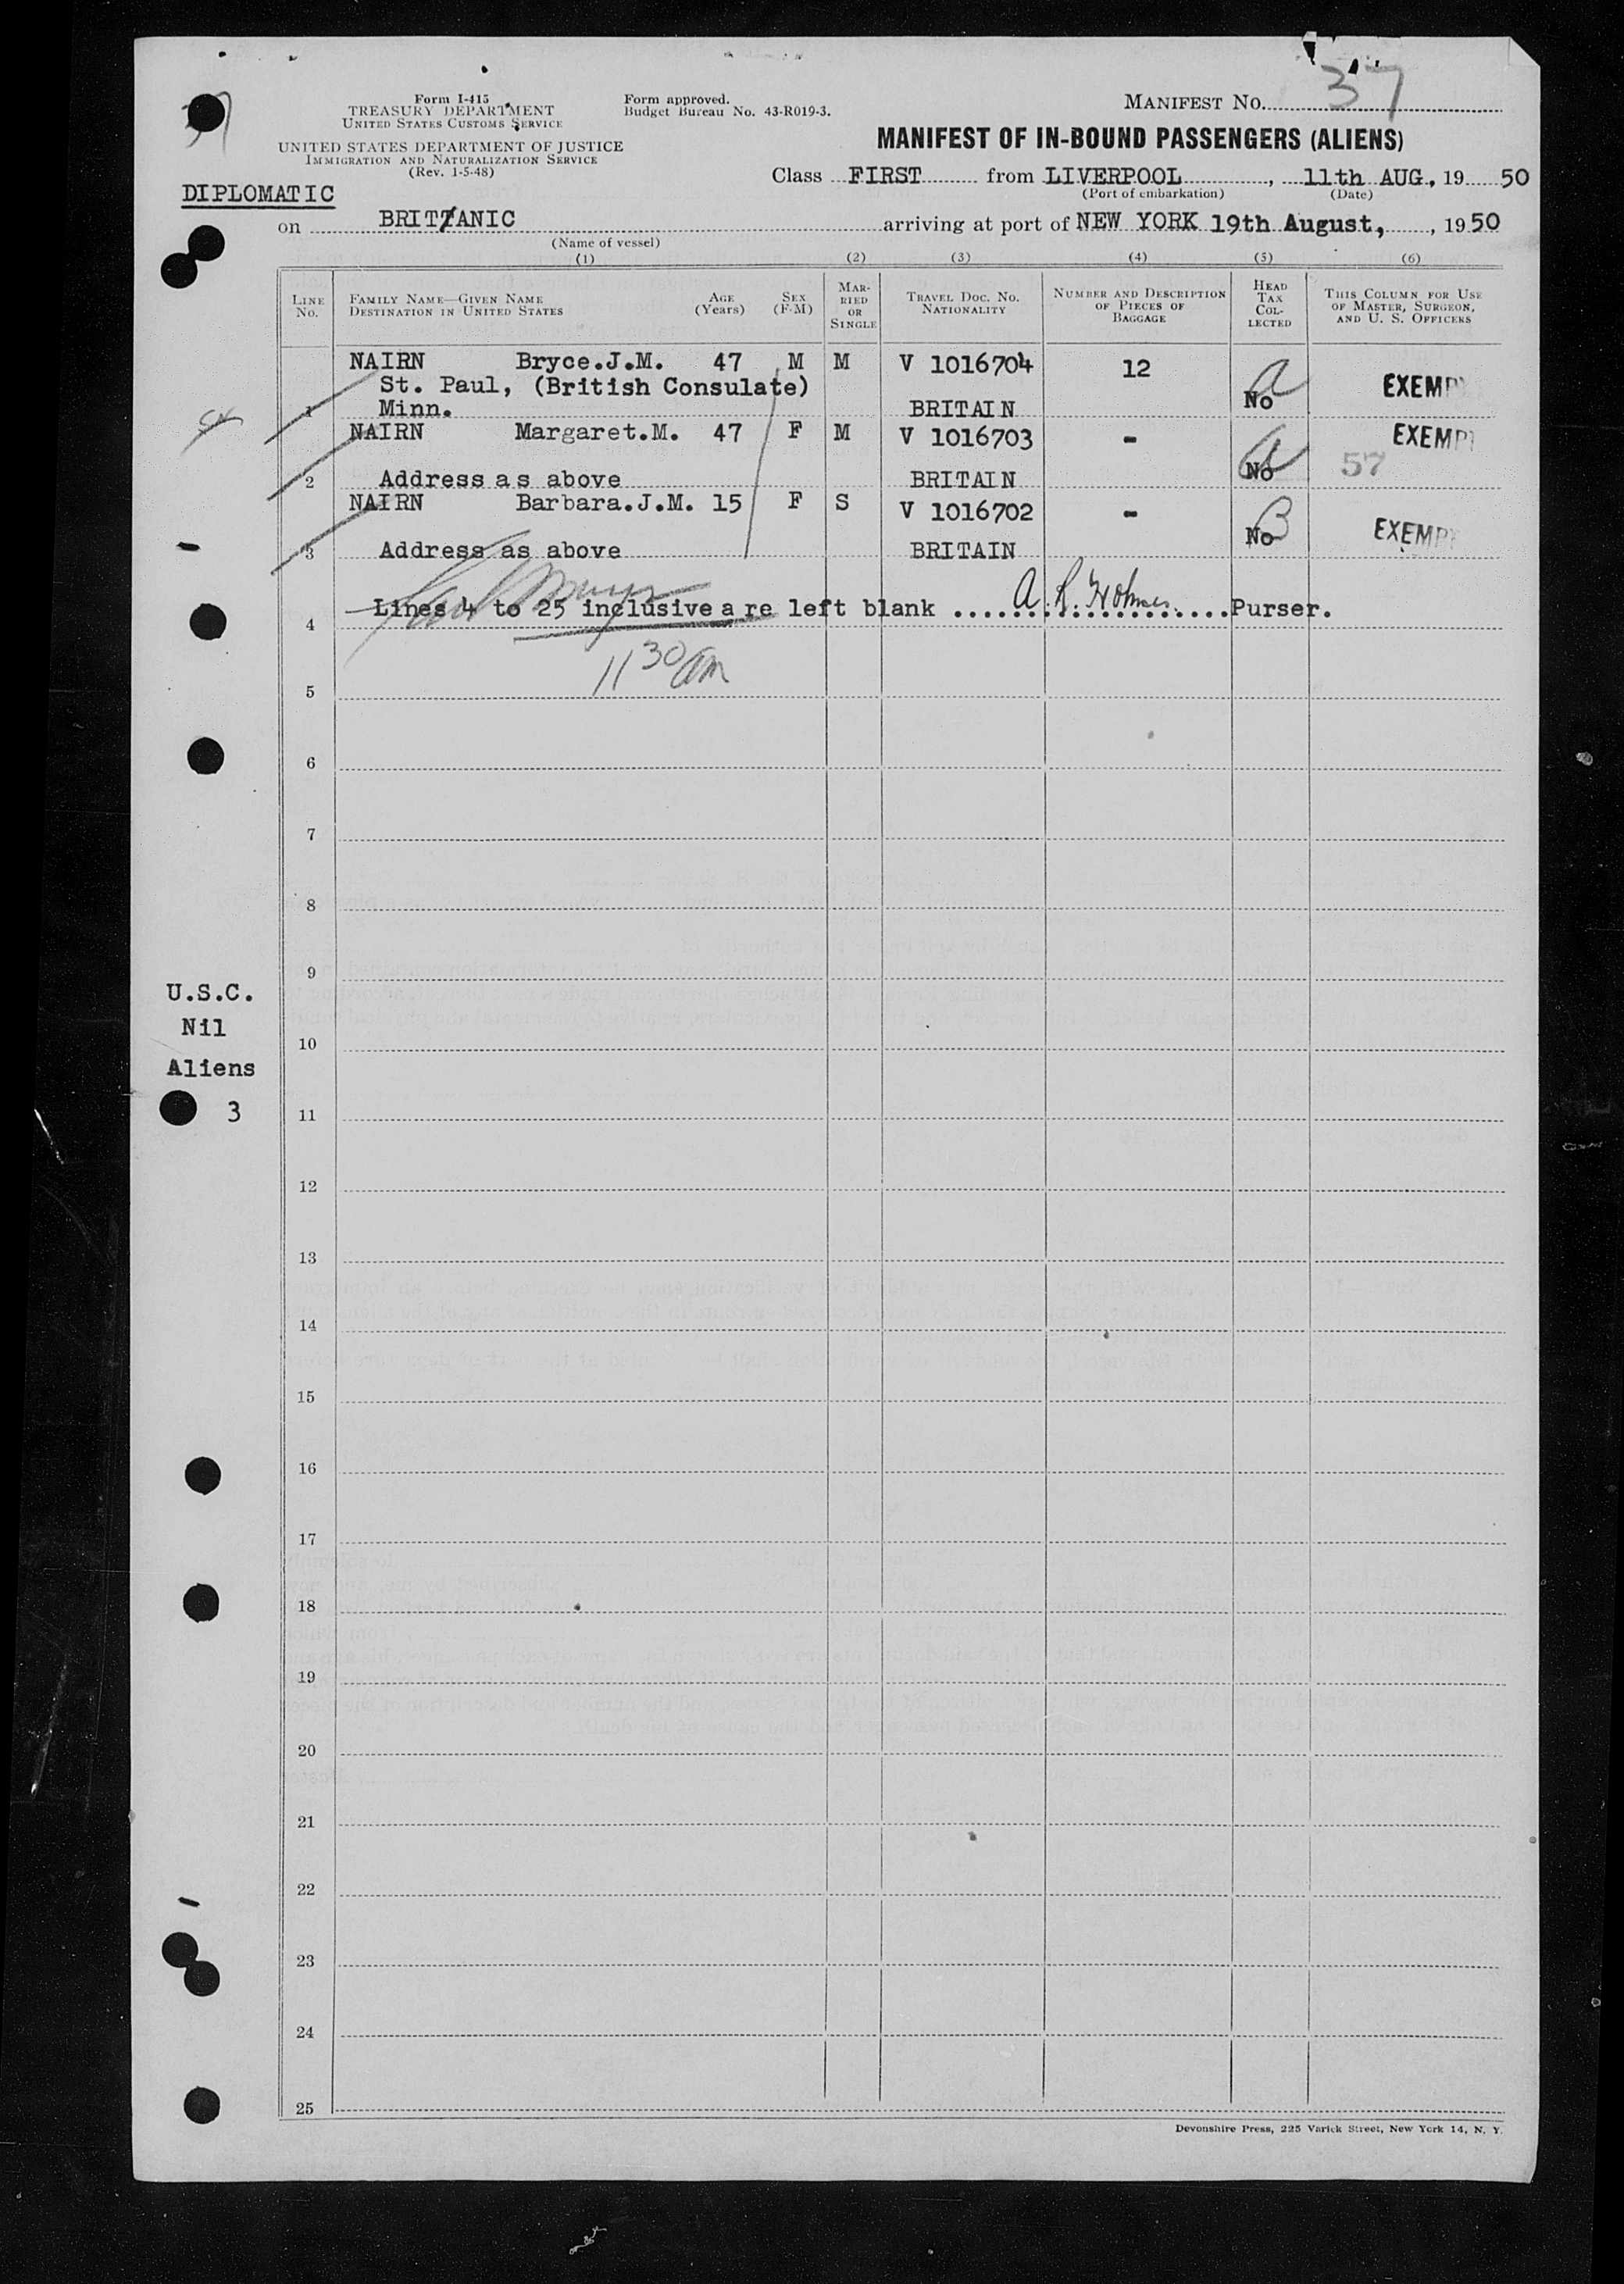 37
Form I-415
TREASURY DEPARTMENT
UNITED STATES CUSTOMS SERVICE
UNITED STATES DEPARTMENT OF JUSTICE
IMMIGRATION AND NATURALIZATION SERVICE
(Rev. 1-5-48)
Form approved.
Budget Bureau No. 43-R019-3.
MANIFEST NO. 37
MANIFEST OF IN-BOUND PASSENGERS (ALIENS)
DIPLOMATIC
Class FIRST from LIVERPOOL, 11th AUG., 19 50
(Port of embarkation) (Date)
on BRITTANIC arriving at port of NEW YORK 19th August, , 19 50
(Name of vessel)
(1) (2) (3) (4) (5) (6)
LINE NO.
FAMILY NAME—GIVEN NAME
DESTINATION IN UNITED STATES
AGE (Years)
SEX (F-M)
MARRIED OR SINGLE
TRAVEL DOC. NO.
NATIONALITY
NUMBER AND DESCRIPTION OF PIECES OF BAGGAGE
HEAD TAX COLLECTED
THIS COLUMN FOR USE OF MASTER, SURGEON, AND U. S. OFFICERS
NAIRN Bryce.J.M. 47 M M V 1016704 12 EXEMP
St. Paul, (British Consulate)
1 Minn. BRITAIN No
NAIRN Margaret.M. 47 F M V 1016703 - EXEMPT
57
2 Address as above BRITAIN No
NAIRN Barbara.J.M. 15 F S V 1016702 - EXEMP
3 Address as above BRITAIN No
Lines 4 to 25 inclusive a re left blank .... A. R. Holmes ....Purser.
4
11 30 am
5
6
7
8
9
U.S.C.
Nil
10
Aliens
3
11
12
13
14
15
16
17
18
19
20
21
22
23
24
25
Devonshire Press, 225 Varick Street, New York 14, N. Y.